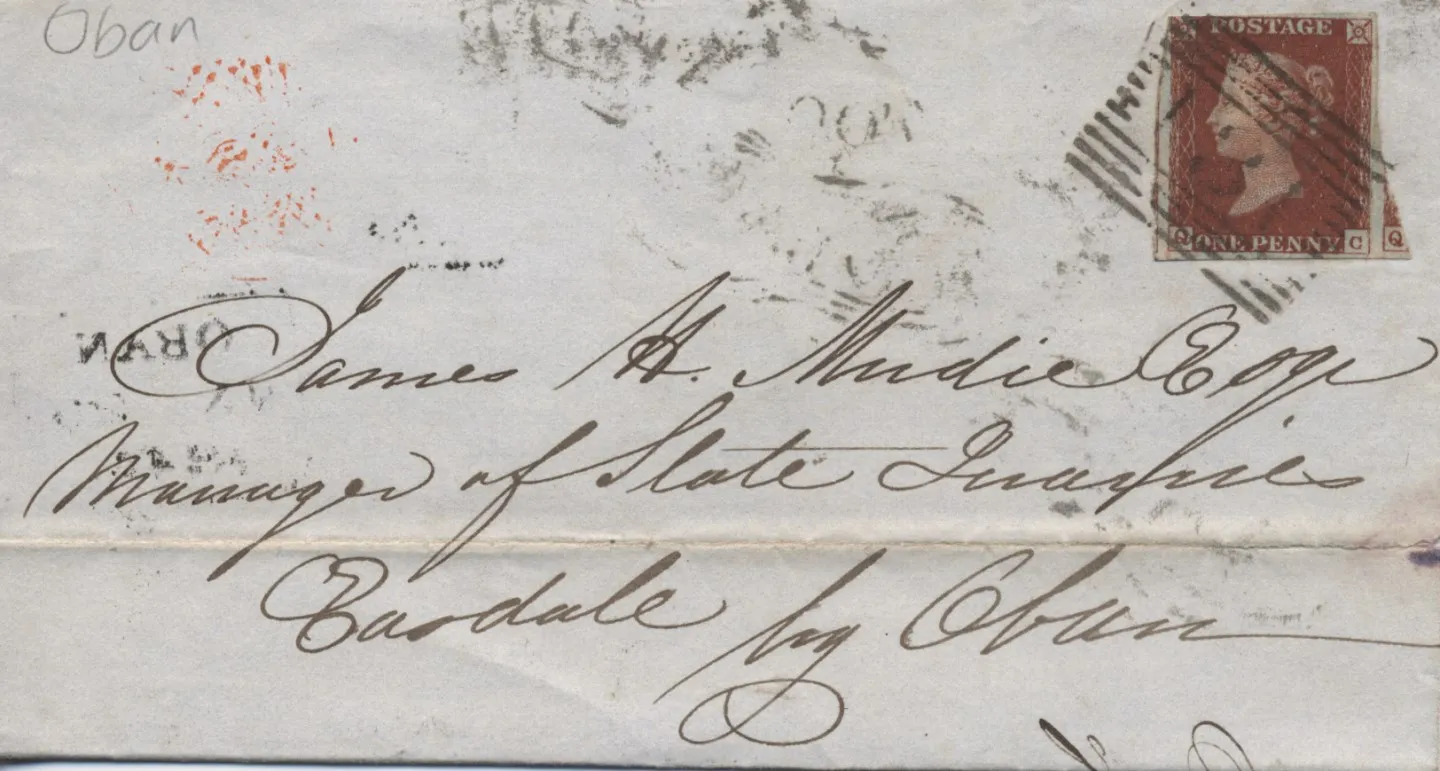 Oban
POSTAGE
ONE PENNY
Q C Q
OBAN
James H. Mudie Esqr
Manager of Slate Quarries
Easdale by Oban